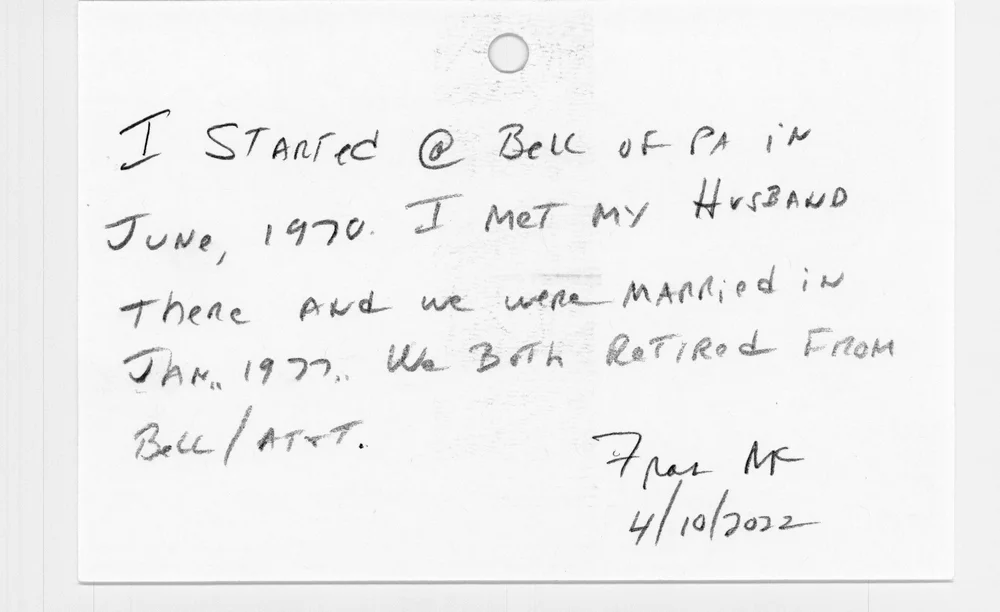 I STARTed @ Bell OF PA iN
JUNe, 1970. I MeT MY HUSBAND
There AND we were MARRied iN
JAN., 1977.. We BOTh ReTIRed FROM
Bell/AT&T.
Fran MK
4/10/2022